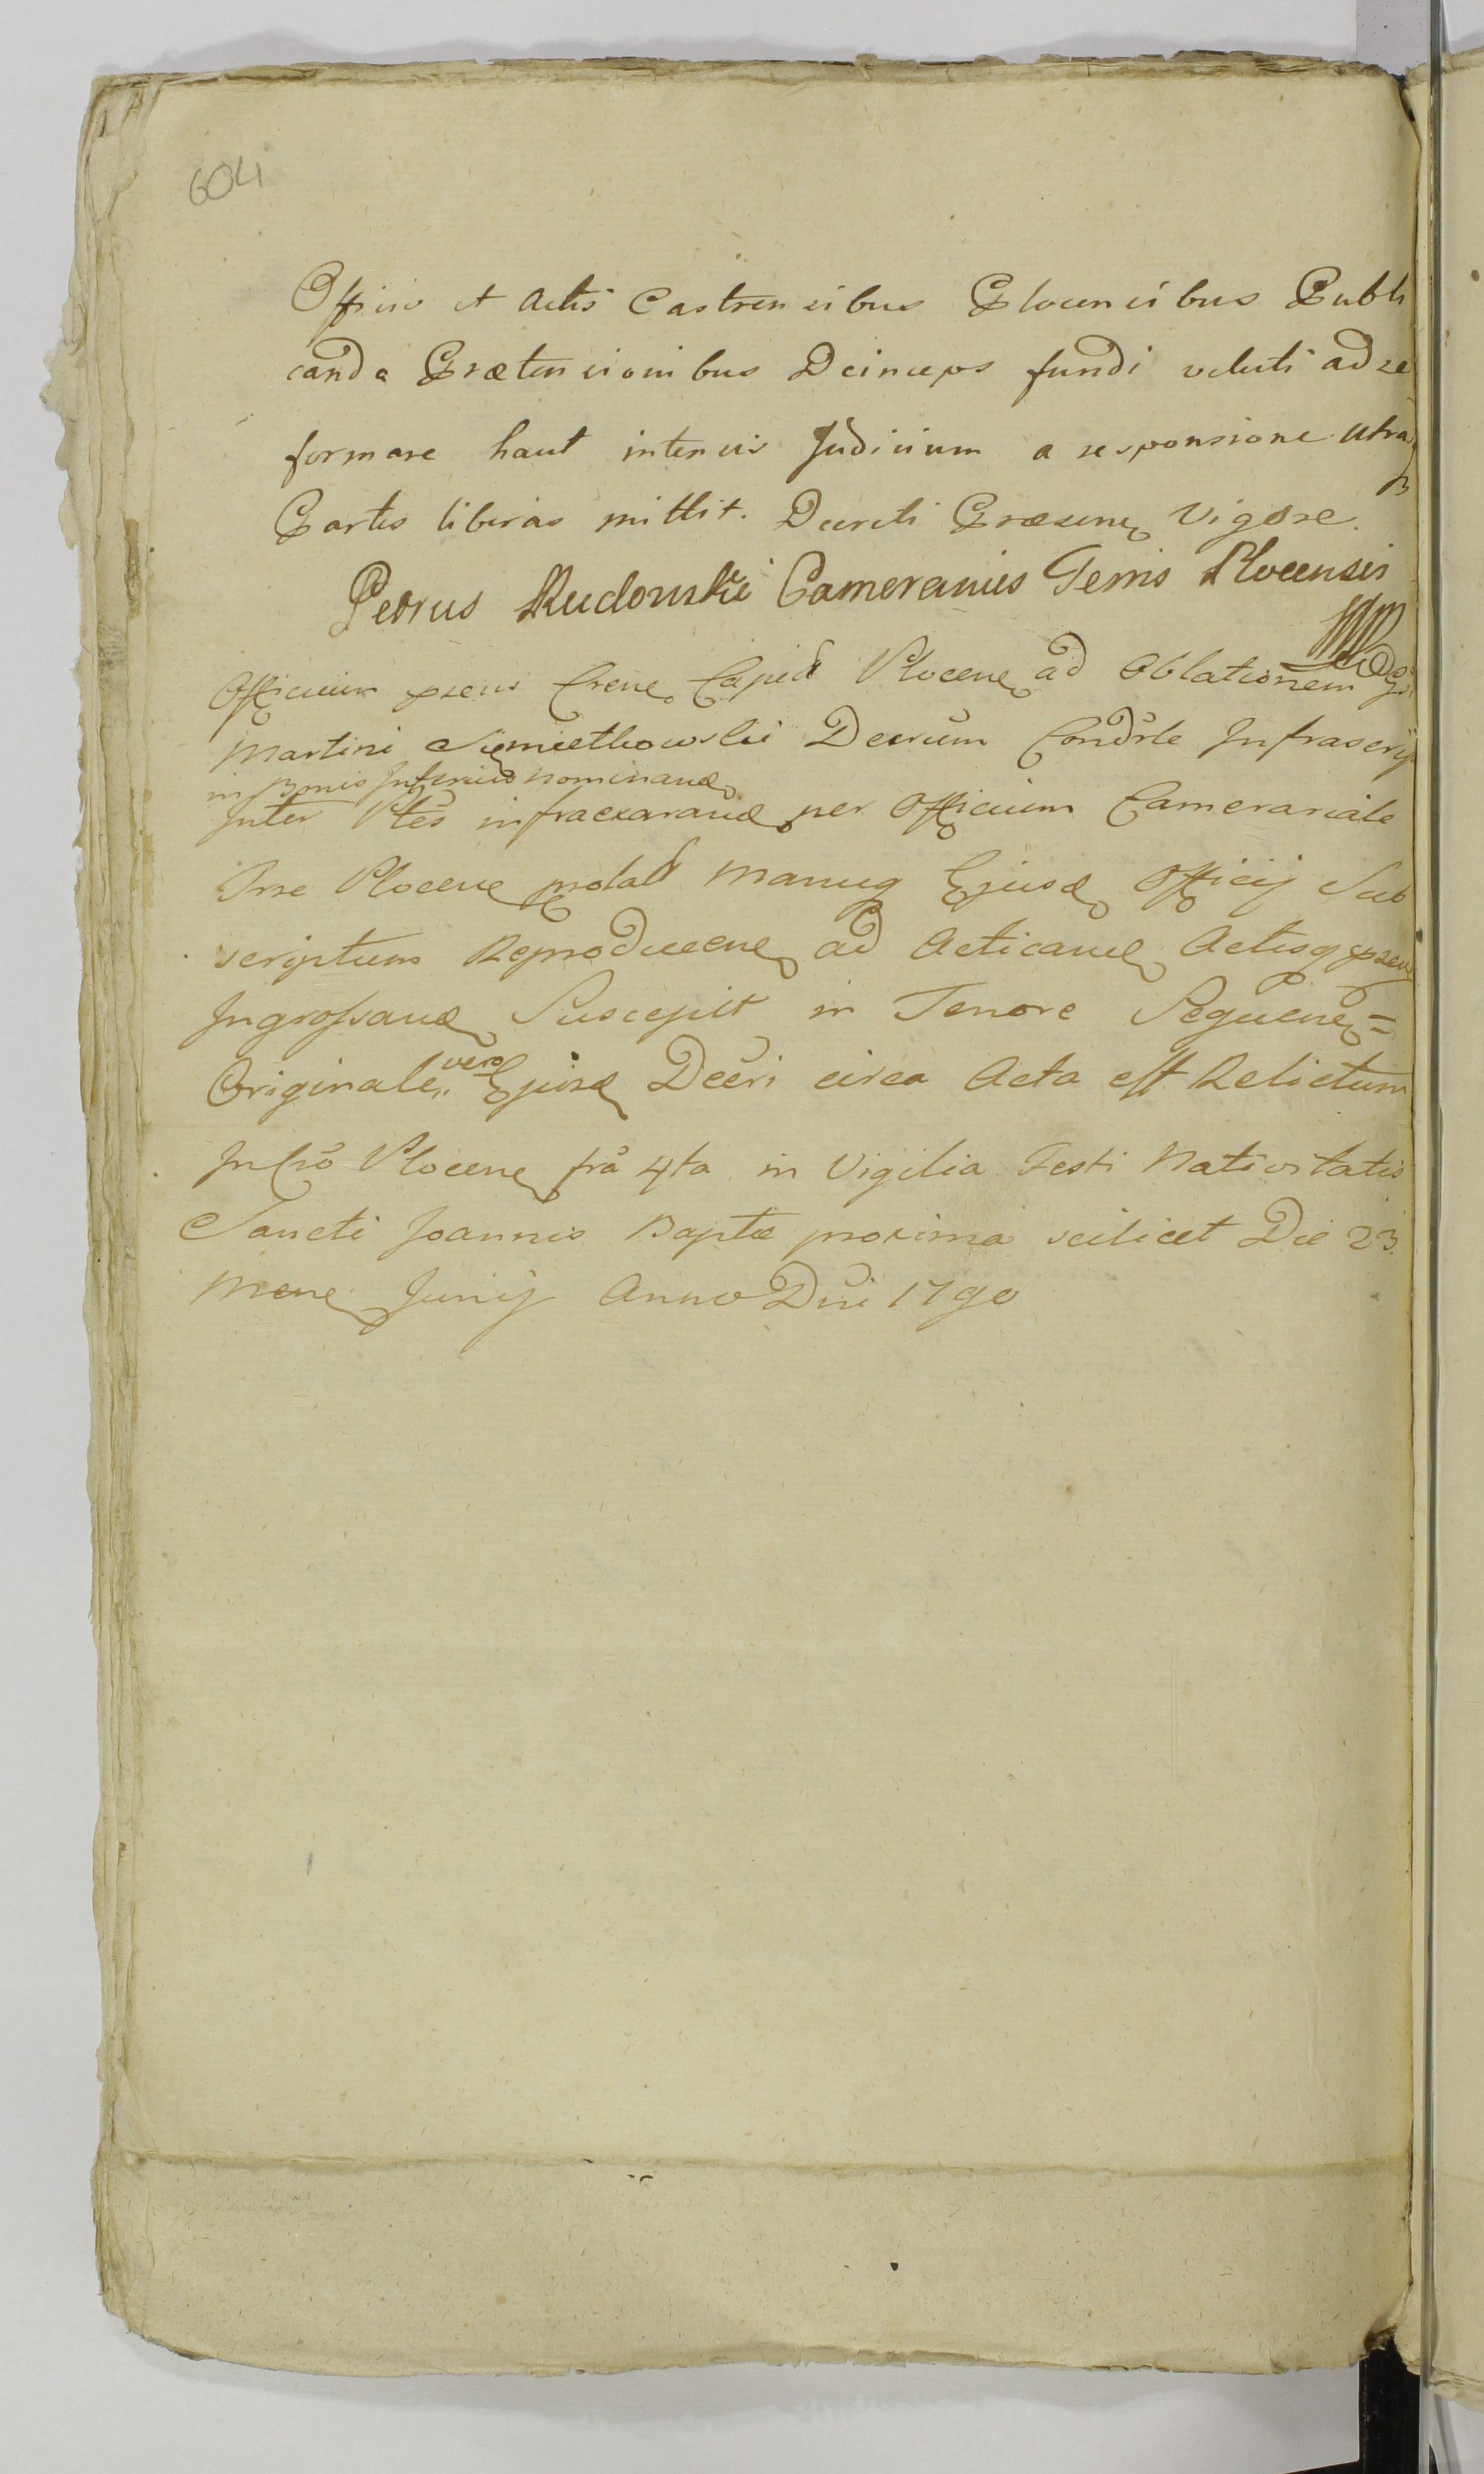 604
Officio et Actis Castrensibus Plocensibus Publi
canda Prætensionibus Deinceps fundi veluti ad re
formare haut intensis Judicium a responsione utraq
Partes liberas mittit. Decreti Præsen Vigore.
Petrus Rudowski Camerarius Terris Plocensis
Officium præns Crene Capit Plocene ad Oblationem
Martini Siemietkowski Decrum Condrle Infrascrip
in Bonis Inferius nominand
Inter Ptes infraexarand per Officium Camerariale
Trre Plocene prolat manuq Ejusd Officij Sub
scriptum Reproducene ad Acticand Actisq præn
Ingrossand Suscepit in Tenore Sequene =
Originale vero Ejusd Decri circa Acta est Relictum
In Cro Plocene fra 4ta in Vigilia Festi Nativitatis
Sancti Joannis Baptæ proxima scilicet Die 23.
Mene Junij Anno Dni 1790